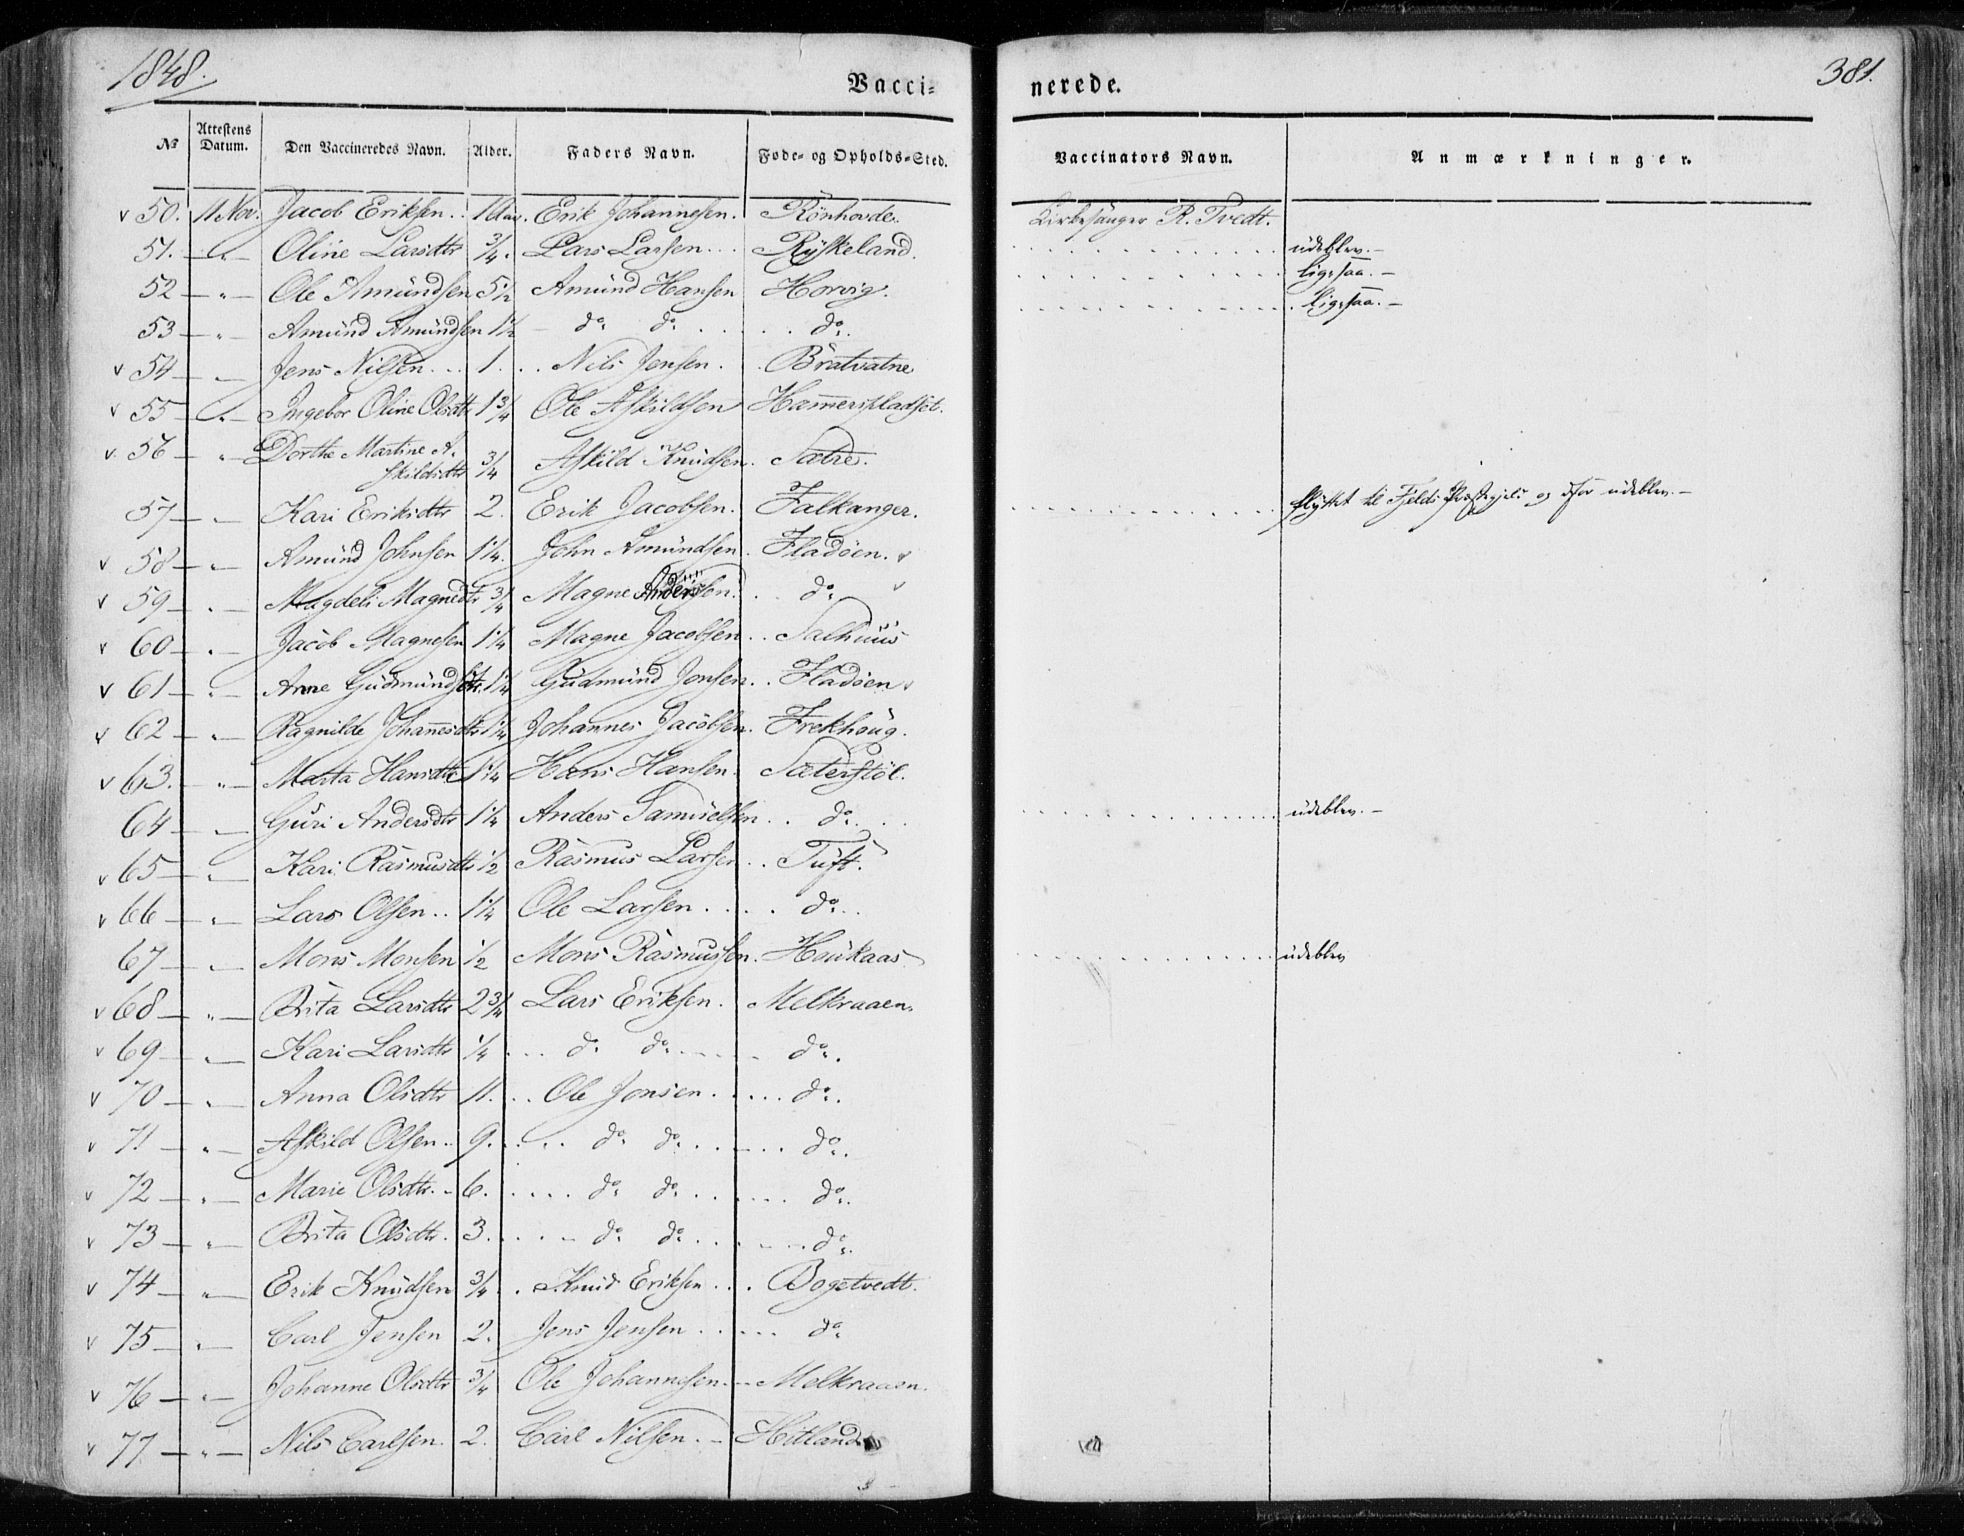 1848.
Vacci-
nerede.
381.
No
Attestens Datum.
Den Vaccineredes Navn.
Alder.
Faders Navn.
Føde- og Opholds-Sted.
Vaccinators Navn.
Anmærkninger.
v 50. 11 Nov. Jacob Eriksen. Erik Johannesen. Rönhovde. Kirkesanger R. Tvedt.
51. — " — Oline Larsdtr 3/4. Lars Larsen. Ryskeland. udeblev. —
52 — " — Ole Amundsen 5 1/2 Amund Hansen Horvig. ligesaa. —
53 — " — Amund Amundsen 1 1/2 — do do do. ligesaa. —
v 54 — " — Jens Nilsen 1. Nils Jensen. Bratvatne
v 55 — " — Ingebor Oline Olsdtr 1 3/4 Ole Askildsen Hammerspladset.
v. 56 — " — Dorthe Martine A-
skildsdtr 3/4 Askild Knudsen. Sætre.
57 — " — Kari Eriksdtr 2. Erik Jacobsen. Falkanger. flyttet til Fjelds Præstegjeld og dfor udeblev. —
v 58 — " — Amund Johnsen 1 1/4. John Amundsen. Fladöen. v
v 59 — " — Magdeli Magnedtr 3/4 Magne Andersen. do v
v 60 — " — Jacob Magnesen 1 1/4 Magne Jacobsen. Salhuus
v 61 — " — Anne Gudmundsdtr. 1 1/4 Gudmund Jonsen. Fladöen v
v 62 — " — Ragnilde Johannesdtr 1 1/4 Johannes Jacobsen. Frekhoug.
v 63. — " — Marta Hansdtr 1 1/4 Hans Hansen. Sæterstöl.
64 — " — Guri Andersdtr 1 1/4 Anders Samuelsen. do. udeblev. —
v 65 — " — Kari Rasmusdtr 1/2 Rasmus Larsen. Tuft.
v 66 — " — Lars Olsen 1 1/4 Ole Larsen. do.
67 — " — Mons Monsen 1/2 Mons Rasmussen. Haukaas udeblev
v 68 — " — Brita Larsdtr 2 3/4 Lars Eriksen. Melkraaen.
v 69 — " — Kari Larsdtr 1/4 do do do.
v 70 — " — Anna Olsdtr 11. Ole Jonsen. do.
v 71 — " — Askild Olsen 9. do do do.
v 72 — " — Marie Olsdtr. 6. do do do.
v 73 — " — Brita Olsdtr. 3. do do do.
v 74 — " — Erik Knudsen 3/4. Knud Eriksen Bogetvedt.
v 75 — " — Carl Jensen 2. Jens Jensen do
v 76 — " — Johanne Olsdtr 3/4 Ole Johannesen. Melkraaen.
v 77 — " — Nils Carlsen. 2. Carl Nilsen. Hitland